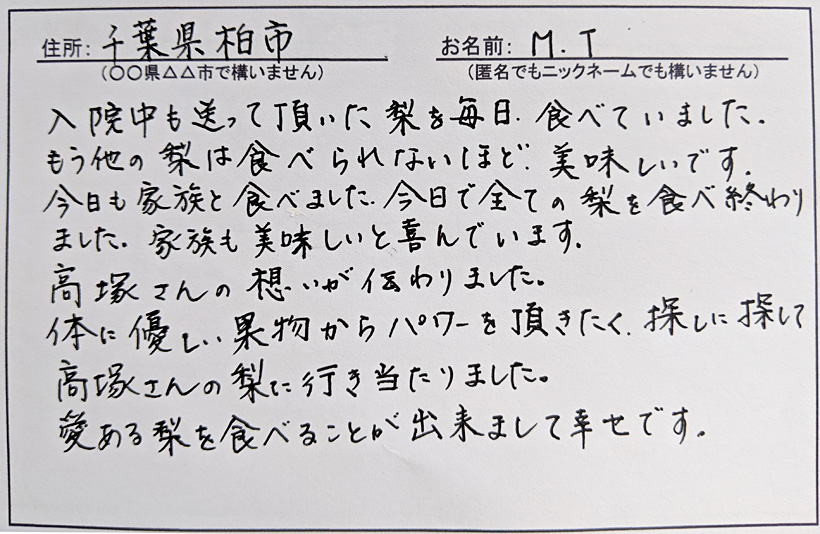 住所: 千葉県柏市 お名前: M.T
(〇〇県△△市で構いません) (匿名でもニックネームでも構いません)
入院中も送って頂いた梨を毎日、食べていました。
もう他の梨は食べられないほど、美味しいです。
今日も家族と食べました。今日で全ての梨を食べ終わり
ました。家族も美味しいと喜んでいます。
高塚さんの想いが伝わりました。
体に優しい果物からパワーを頂きたく、探しに探して
高塚さんの梨に行き当たりました。
愛ある梨を食べることが出来まして幸せです。